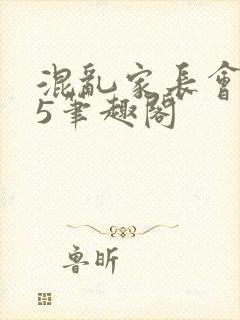 混亂家長會
5筆趣閣
魯昕